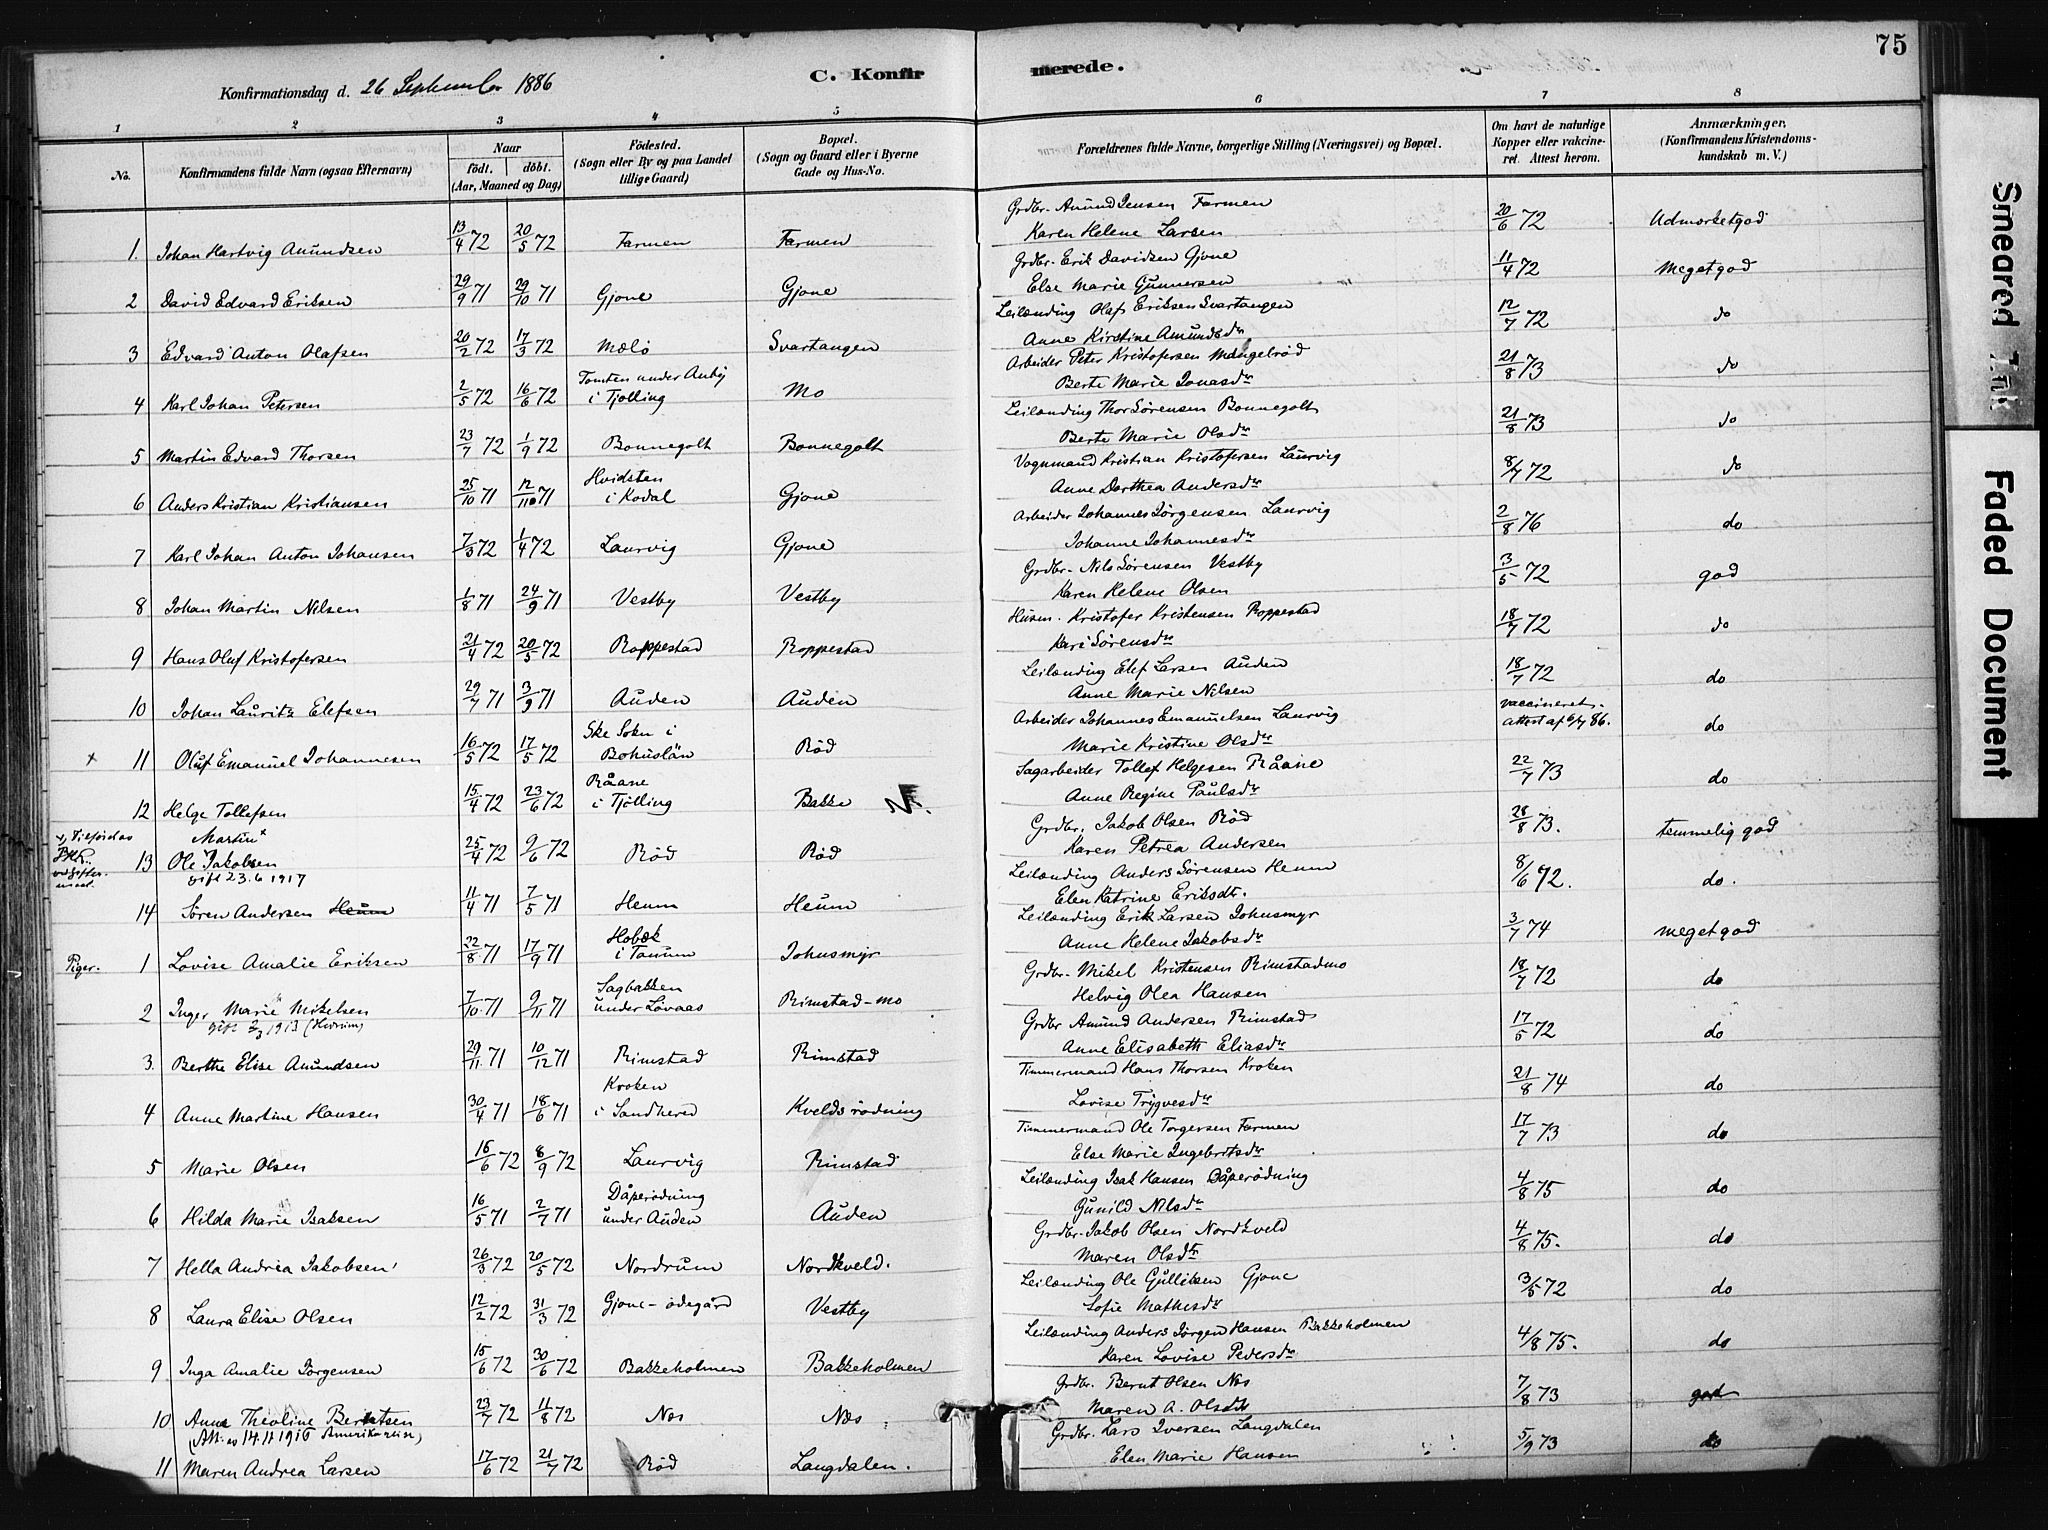 75
C. Konfir
merede.
Konfirmationsdag d. 26 September 1886
1 2 3 4 5 6 7 8
No.
Konfirmandens fulde Navn (ogsaa Efternavn)
Naar
födt. döbt.
(Aar, Maaned og Dag)
Födested.
(Sogn eller By og paa Landet
tillige Gaard)
Bopæl.
(Sogn og Gaard eller i Byerne
Gade og Hus-No.
Forældrenes fulde Navne, borgerlige Stilling (Næringsvei) og Bopæl.
Om havt de naturlige
Kopper eller vakcine-
ret. Attest herom.
Anmærkninger,
(Konfirmandens Kristendoms-
kundskab m. V.)
1. Johan Hartvig Amundsen 13/4 72 20/5 72 Farmen Farmen Grdbr. Amund Jensen Farmen 20/6 72 Udmerketgod
Karen Helene Larsen
2 David Edvard Eriksen 29/9 71 29/10 71 Gjone Gjone Grdbr. Erik Davidsen Gjone 11/4 72 megetgod
Else Marie Gunnersen
3 Edvard Anton Olafsen 20/2 72 17/3 72 Mælø Svartangen Leilænding Olaf Eriksen Svartangen 12/7 72 do
Anne Kirstine Amundsdr
4 Karl Johan Petersen 2/5 72 16/6 72 Tomten under Auby i Tjølling Mo Arbeider Peter Kristofersen Mangelrød 21/8 73 do
Berte Marie Jonasdr
5 Martin Edvard Thorsen 23/7 72 1/9 72 Bonnegolt Bonnegolt Leilænding Thor Sørensen Bonnegolt 21/8 73 do
Berte Marie Olsdr
6 Anders Kristian Kristiansen 25/10 71 12/11 71 Hvidsten i Kodal Gjone Vognmand Kristian Kristofersen Laurvig 8/7 72 do
Anne Dorthea Andersdr
7 Karl Johan Anton Johansen 7/3 72 1/4 72 Laurvig Gjone Arbeider Johannes Jørgensen Laurvig 2/8 76 do
Johanne Johannesdr
8 Johan Martin Nilsen 1/8 71 24/9 71 Vestby Vestby Grdbr. Nils Sørensen Vestby 3/5 72 god
Karen Helene Olsen
9 Hans Oluf Kristofersen 21/4 72 20/5 72 Roppestad Roppestad Husm. Kristofer Kristensen Roppestad 18/7 72 do
Kari Sørensdr
10 Johan Lauritz Elefsen 29/7 71 3/9 71 Auden Auden Leilænding Elef Larsen Auden 18/7 72 do
Anne Marie Nilsen
11 Oluf Emanuel Johannesen 16/5 72 17/5 72 Ske Sokn i Bohuslän Rød Arbeider Johannes Emanuelsen Laurvig vaccineret. attest af 6/7 86. do
Marie Kristine Olsdr
12 Helge Tollefsen 15/4 72 23/6 72 Råane i Tjølling Bakke Sagarbeider Tollef Helgesen Råane 22/7 73 do
Anne Regine Paulsdr
x, Tilføidas
ved gifter-
maal.
Martin x
13 Ole Jakobsen 25/4 72 9/6 72 Rød Rød Grdbr. Jakob Olsen Rød 28/8 73. temmelig god
gift 23.6 1917
Karen Petrea Andersen
14 Søren Andersen Heum 11/4 71 7/5 71 Heum Heum Leilænding Anders Sørensen Heum 8/6 72. do.
Elen Katrine Eriksdtr.
Piger. 1 Lovise Amalie Eriksen 22/8 71 17/9 71 Hobæk i Tanum Johusmyr Leilænding Erik Larsen Johusmyr 3/7 74 megetgod
Anne Helene Jakobsdr
2 Inger Marie Mikelsen 7/10 71 9/11 71 Sagbakken under Løvaas Rimstad-mo Grdbr. Mikel Kristensen Rimstadmo 18/7 72 do
gift 2/3 1913 (Hedrum)
Helvig Olea Hansen
3. Berthe Elise Amundsen 29/11 71 10/12 71 Rimstad Rimstad Grdbr Amund Andersen Rimstad 17/5 72 do
Anne Elisabeth Eliasdr
4 Anne Martine Hansen 30/4 71 18/6 71 Kroken i Sandherred Kveldsrødning Timmermand Hans Thorsen Kroken 21/8 74 do
Lovise Trygvesdr
5 Marie Olsen 16/6 72 8/9 72 Laurvig Rimstad Timmermand Ole Torgersen Farmen 17/7 73 do
Else Marie Ingebritsdr
6 Hilda Marie Isaksen 16/5 71 2/7 71 Dåperødning under Auden Auden Leilænding Isak Hansen Dåperødning 4/8 75 do
Gunild Nilsdr
7 Hella Andrea Jakobsen 26/3 72 20/5 72 Nordrum Nordkveld. Grdbr. Jakob Olsen Nordkveld 4/8 75. do
Maren Olsdtr
8 Laura Elise Olsen 12/2 72 31/3 72 Gjone-ødegård Vestby Leilænding Ole Gulliksen Gjone 3/5 72 do
Sofie Mathisdr
9. Inga Amalie Jørgensen 15/6 72 30/6 72 Bakkeholmen Bakkeholmen Leilænding Anders Jørgen Hansen Bakkeholmen 4/8 75. do
Karen Lovise Pedersdr
10 Anne Theoline Berntsen 23/7 72 11/8 72 Nes Nes Grdbr. Bernt Olsen Nes 7/8 73 god
(Att. es 14.11 1916 Amerikareise)
Maren A. Olsdtr
11 Maren Andrea Larsen 17/6 72 21/7 72 Rød Langdalen. Grdbr. Lars Iversen Langdalen 5/9 73 do
Elen Marie Hansen
Smeared Ink
Faded Document